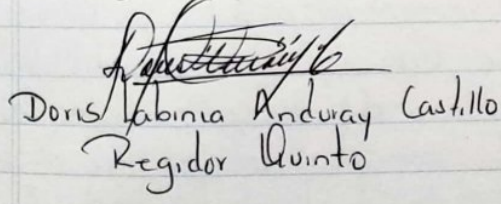 Doris Labinia Anduray Castillo
Regidor Quinto